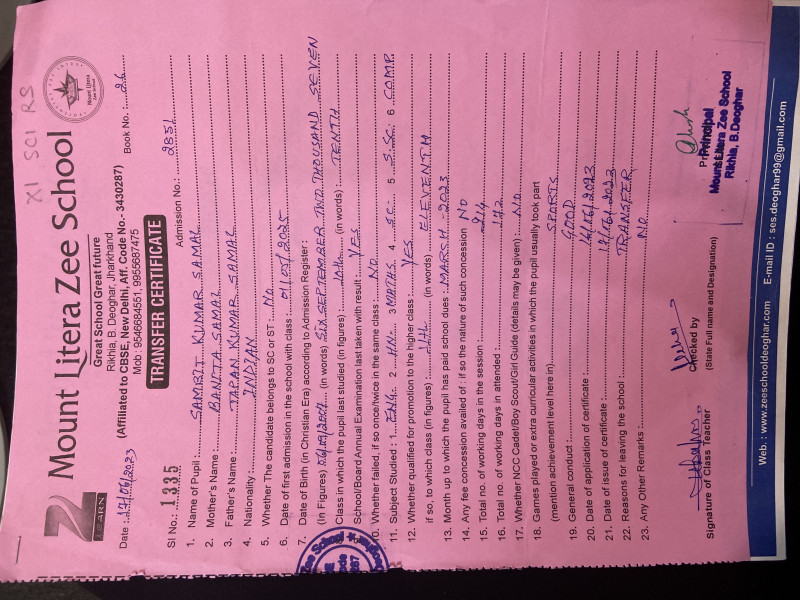 XI SCI RS
Mount Litera Zee School
Great School Great future
Rikhia, B. Deoghar, Jharkhand
(Affiliated to CBSE, New Delhi, Aff. Code No.- 3430287)
Mob : 9546684551, 9955687475
LEARN
Mount Litera
Zee School
Date : 17/06/2023
Book No. : 26
TRANSFER CERTIFICATE
Sl No. : 1335
Admission No.: 2851
1. Name of Pupil : SAMBIT KUMAR SAMAL
2. Mother's Name : BANITA SAMAL
3. Father's Name : TAPAN KUMAR SAMAL
4. Nationality : INDIAN
5. Whether The candidate belongs to SC or ST : NO
6. Date of first admission in the school with class : 01/07/2025
7. Date of Birth (in Christian Era) according to Admission Register :
(In Figures) 06/09/2007 (In words) SIX SEPTEMBER TWO THOUSAND SEVEN
Class in which the pupil last studied (in figures) : 10th (in words) TENTH
School/Board Annual Examination last taken with result : YES
10. Whether failed, if so once/twice in the same class : NO
11. Subject Studied : 1 ENG. 2 HN. 3 MATHS. 4 SC. 5 S.SC. 6 COMP.
12. Whether qualified for promotion to the higher class : YES
if so, to which class (in figures) : 11th (in words) ELEVENTH
13. Month up to which the pupil has paid school dues : MARSH-2023
14. Any fee concession availed of : if so the nature of such concession NO
15. Total no. of working days in the session : 214
16. Total no. of working days in attended : 192
17. Whether NCC Cadet/Boy Scout/Girl Guide (details may be given) : NO
18. Games played or extra curricular activities in which the pupil usually took part
(mention achievement level here in) SPORTS
19. General conduct : GOOD
20. Date of application of certificate : 16/06/2023
21. Date of issue of certificate : 17/06/2023
22. Reasons for leaving the school : TRANSFER
23. Any Other Remarks : NO
Signature of Class Teacher
Checked by
(State Full name and Designation)
Principal
Principal
Mount Litera Zee School
Rikhia, B.Deoghar
Web : www.zeeschooldeoghar.com
E-mail ID : ses.deoghar99@gmail.com